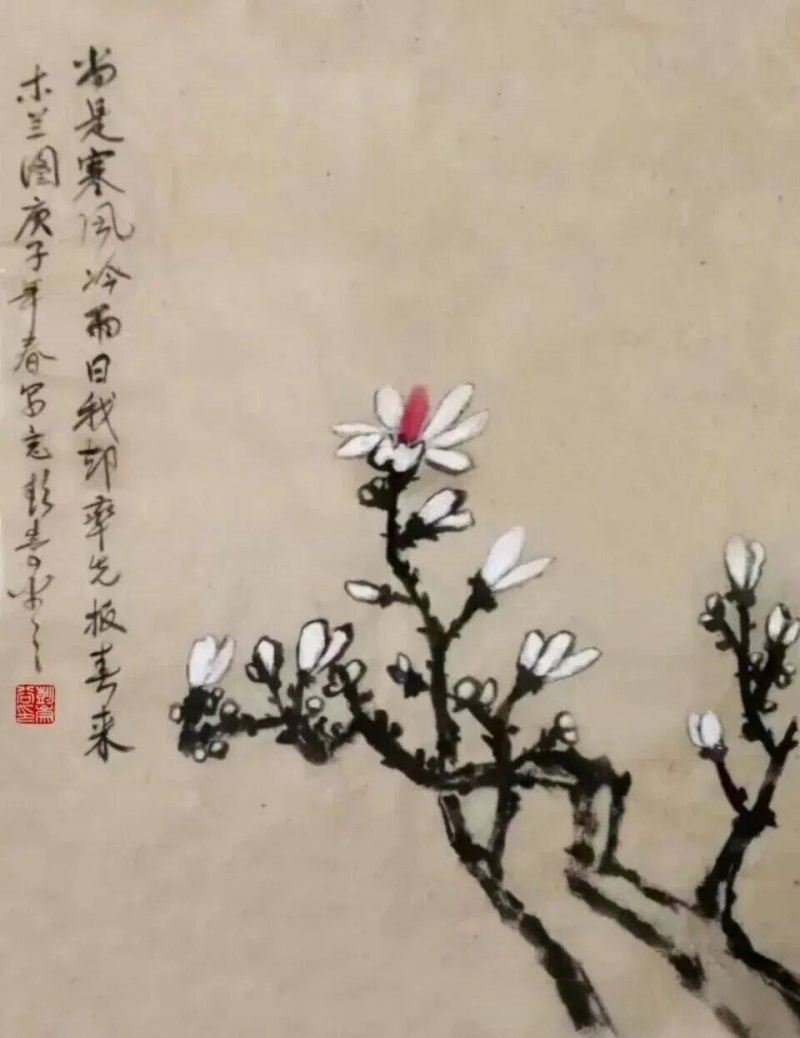 尚是寒风冷雨日我却率先报春来
木兰图庚子年春写意彭春